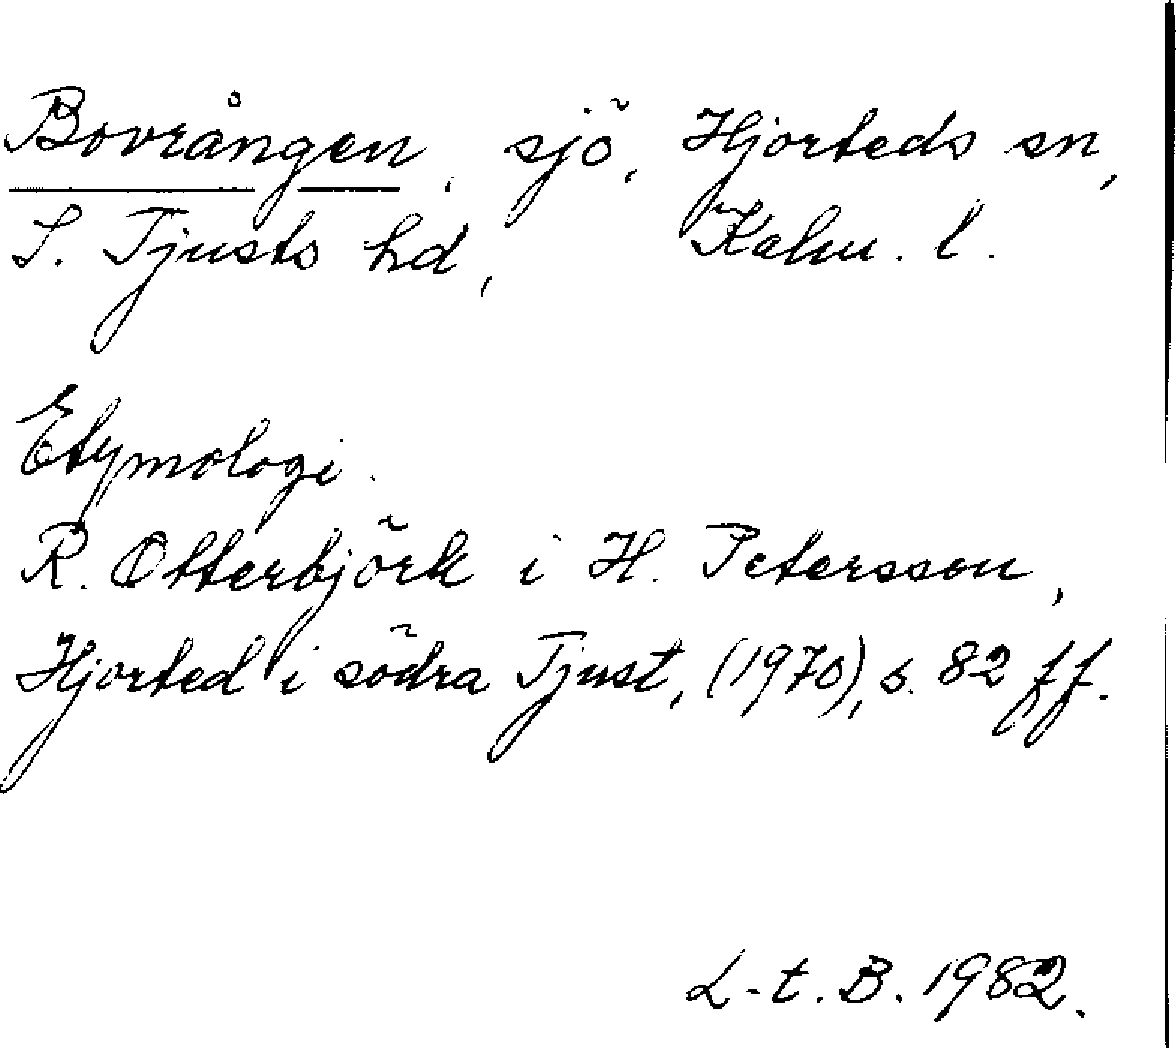 Bovrången, sjö, Hjorteds sn,
S. Tjusts hd, Kalm. l.
Etymologi.
R. Otterbjörk i H. Petersson,
Hjorted i södra Tjust, (1970), s. 82 ff.
L-t. B. 1982.